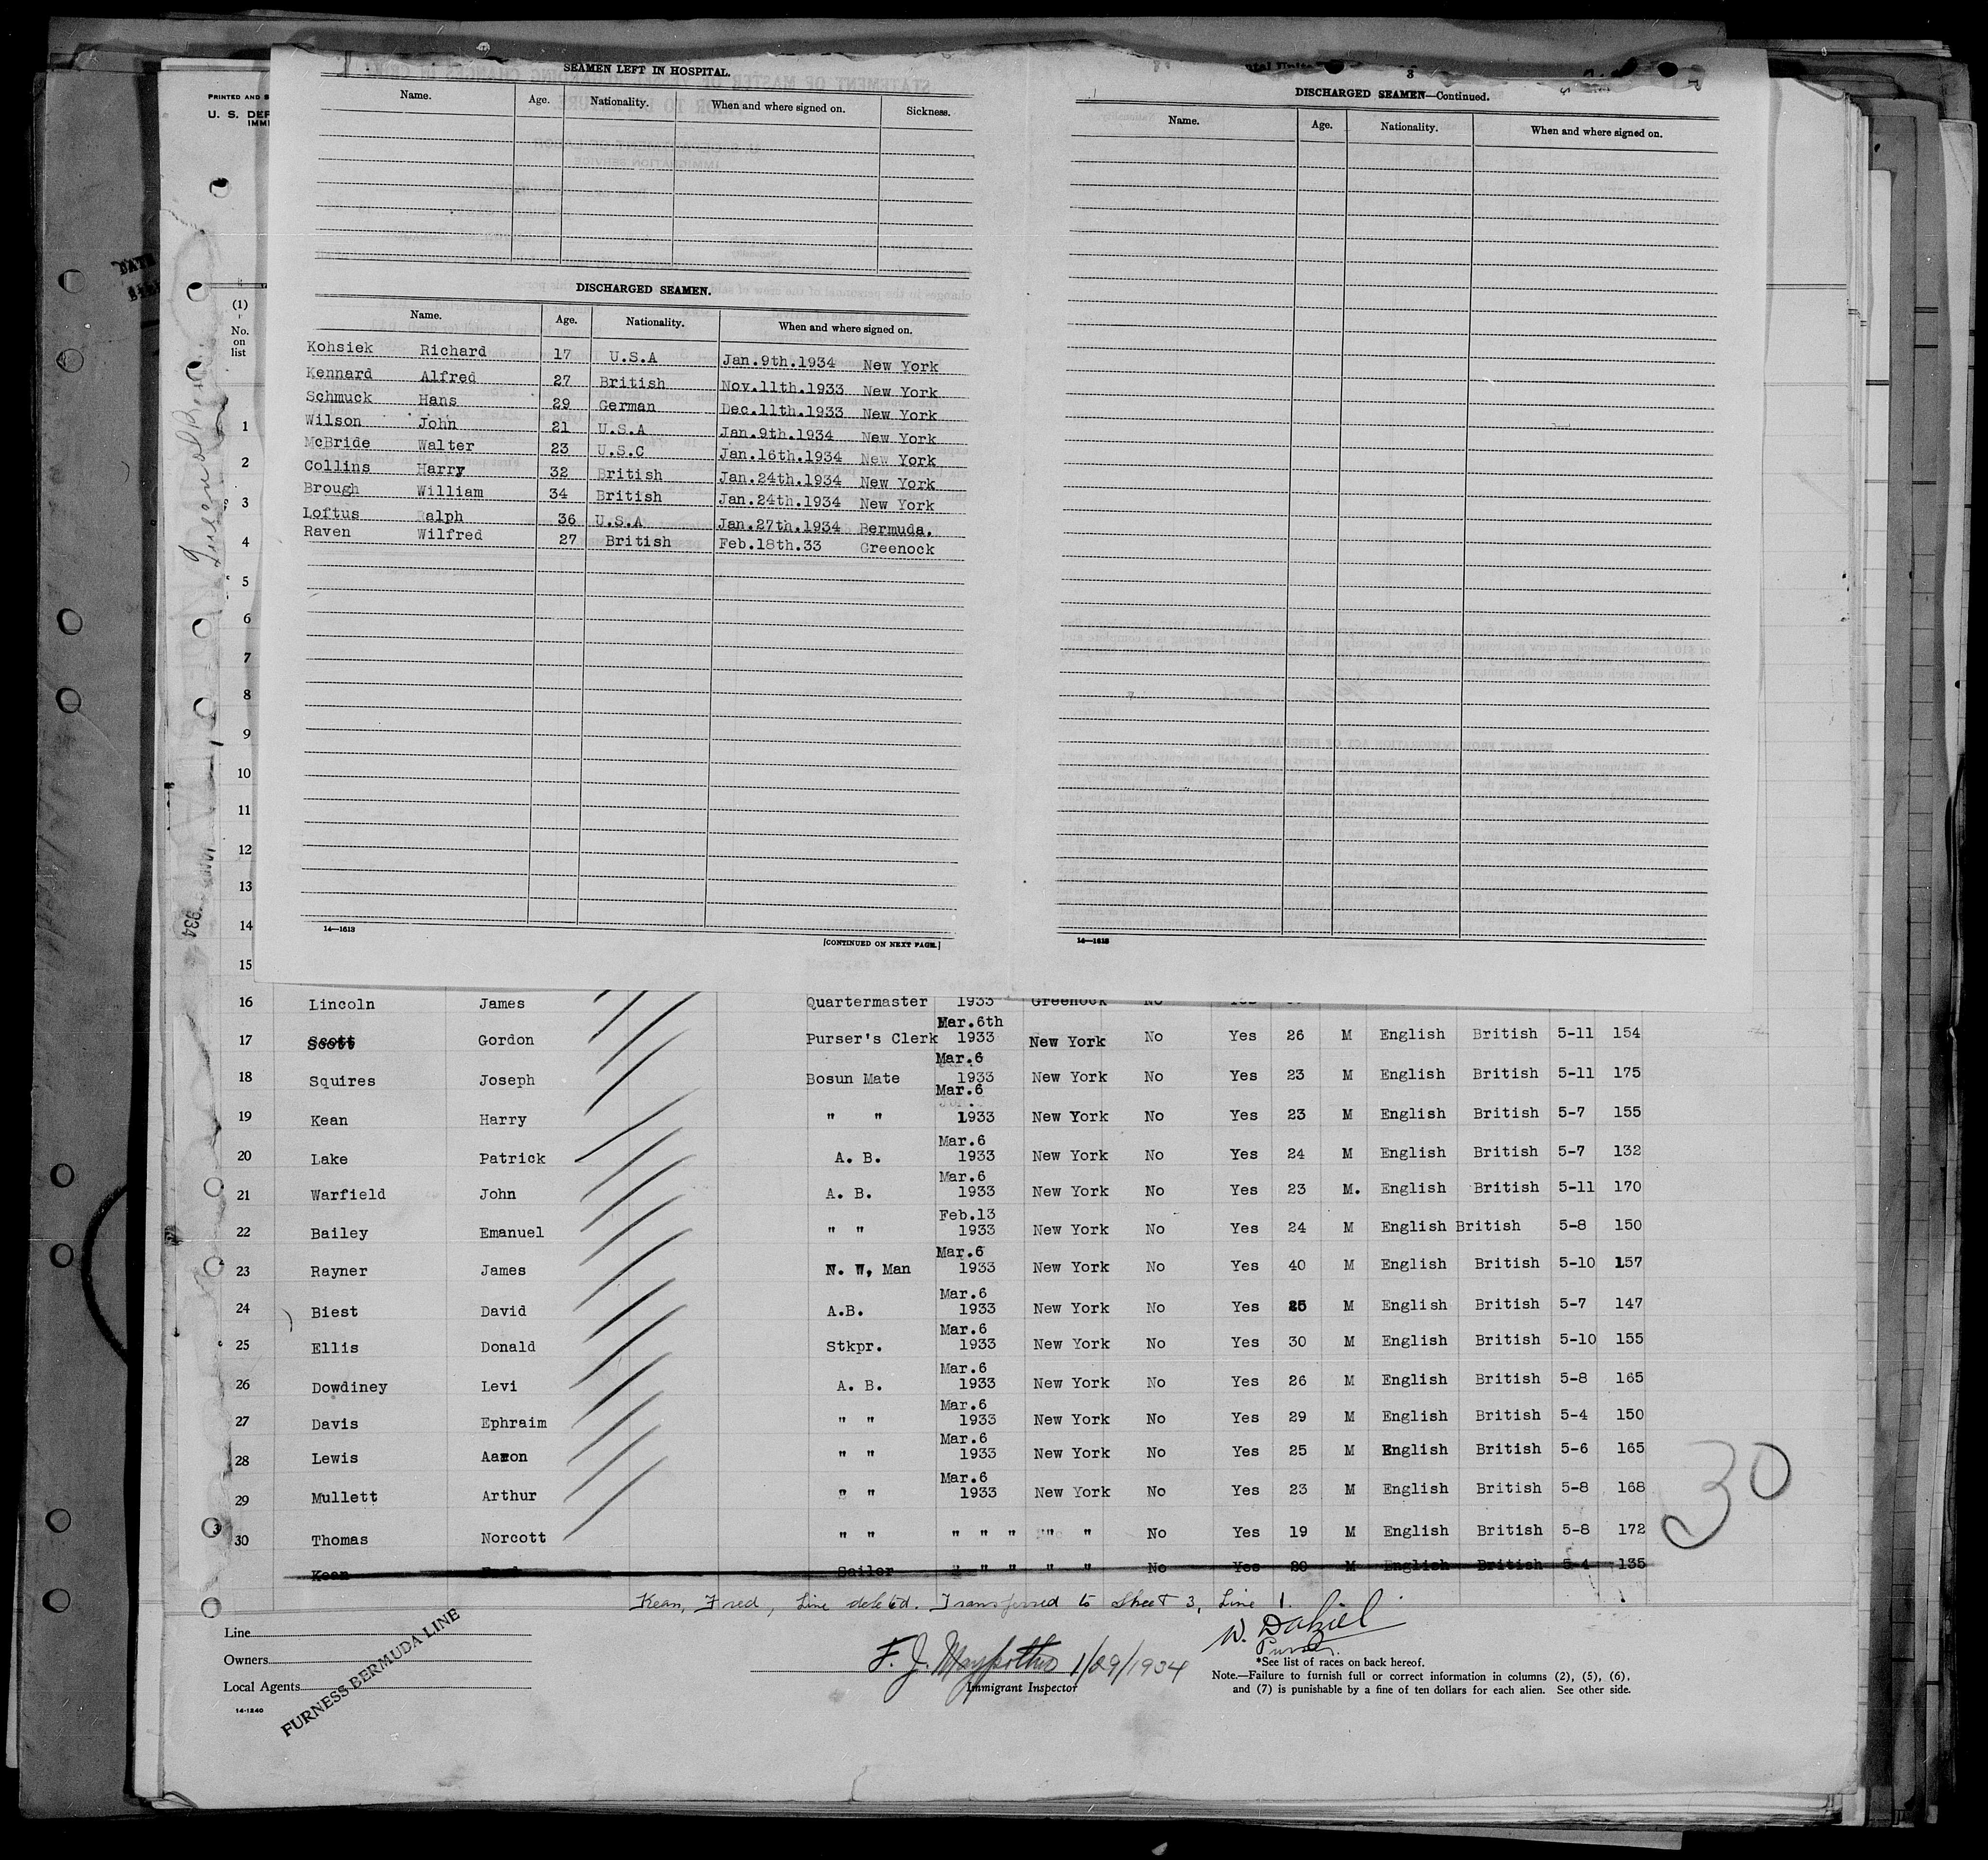 SEAMEN LEFT IN HOSPITAL.
Name. Age. Nationality. When and where signed on. Sickness.
DISCHARGED SEAMEN.
Name. Age. Nationality. When and where signed on.
Kohsiek Richard 17 U.S.A Jan.9th.1934 New York
Kennard Alfred 27 British Nov.11th.1933 New York
Schmuck Hans 29 German Dec.11th.1933 New York
Wilson John 21 U.S.A Jan.9th.1934 New York
McBride Walter 23 U.S.C Jan.16th.1934 New York
Collins Harry 32 British Jan.24th.1934 New York
Brough William 34 British Jan.24th.1934 New York
Loftus Ralph 36 U.S.A Jan.27th.1934 Bermuda.
Raven Wilfred 27 British Feb.18th.33 Greenock
14—1613
[CONTINUED ON NEXT PAGE.]
3
DISCHARGED SEAMEN—Continued.
Name. Age. Nationality. When and where signed on.
14—1613
PRINTED AND S
U. S. DEP
IMMI
(1)
No.
on
list
1
2
3
4
5
6
7
8
9
10
11
12
13
14
15
16 Lincoln James Quartermaster 1933 Greenock No Yes
17 Scott Gordon Purser's Clerk Mar.6th 1933 New York No Yes 26 M English British 5-11 154
18 Squires Joseph Bosun Mate Mar.6 1933 New York No Yes 23 M English British 5-11 175
19 Kean Harry " " Mar.6 1933 New York No Yes 23 M English British 5-7 155
20 Lake Patrick A. B. Mar.6 1933 New York No Yes 24 M English British 5-7 132
21 Warfield John A. B. Mar.6 1933 New York No Yes 23 M. English British 5-11 170
22 Bailey Emanuel " " Feb.13 1933 New York No Yes 24 M English British 5-8 150
23 Rayner James N. W, Man Mar.6 1933 New York No Yes 40 M English British 5-10 157
24 Biest David A.B. Mar.6 1933 New York No Yes 25 M English British 5-7 147
25 Ellis Donald Stkpr. Mar.6 1933 New York No Yes 30 M English British 5-10 155
26 Dowdiney Levi A. B. Mar.6 1933 New York No Yes 26 M English British 5-8 165
27 Davis Ephraim " " Mar.6 1933 New York No Yes 29 M English British 5-4 150
28 Lewis Aaron " " Mar.6 1933 New York No Yes 25 M English British 5-6 165
29 Mullett Arthur " " Mar.6 1933 New York No Yes 23 M English British 5-8 168
30 Thomas Norcott " " " " " " " No Yes 19 M English British 5-8 172
Kean Sailor " " " " " No Yes 20 M English British 5-4 135
30
Kean, Fred, Line deleted. Transferred to Sheet 3, Line 1.
Line
Owners
Local Agents
FURNESS BERMUDA LINE
14-1240
1/29/1934
Immigrant Inspector
W. Dalziel
Purser.
*See list of races on back hereof.
Note.—Failure to furnish full or correct information in columns (2), (5), (6),
and (7) is punishable by a fine of ten dollars for each alien. See other side.